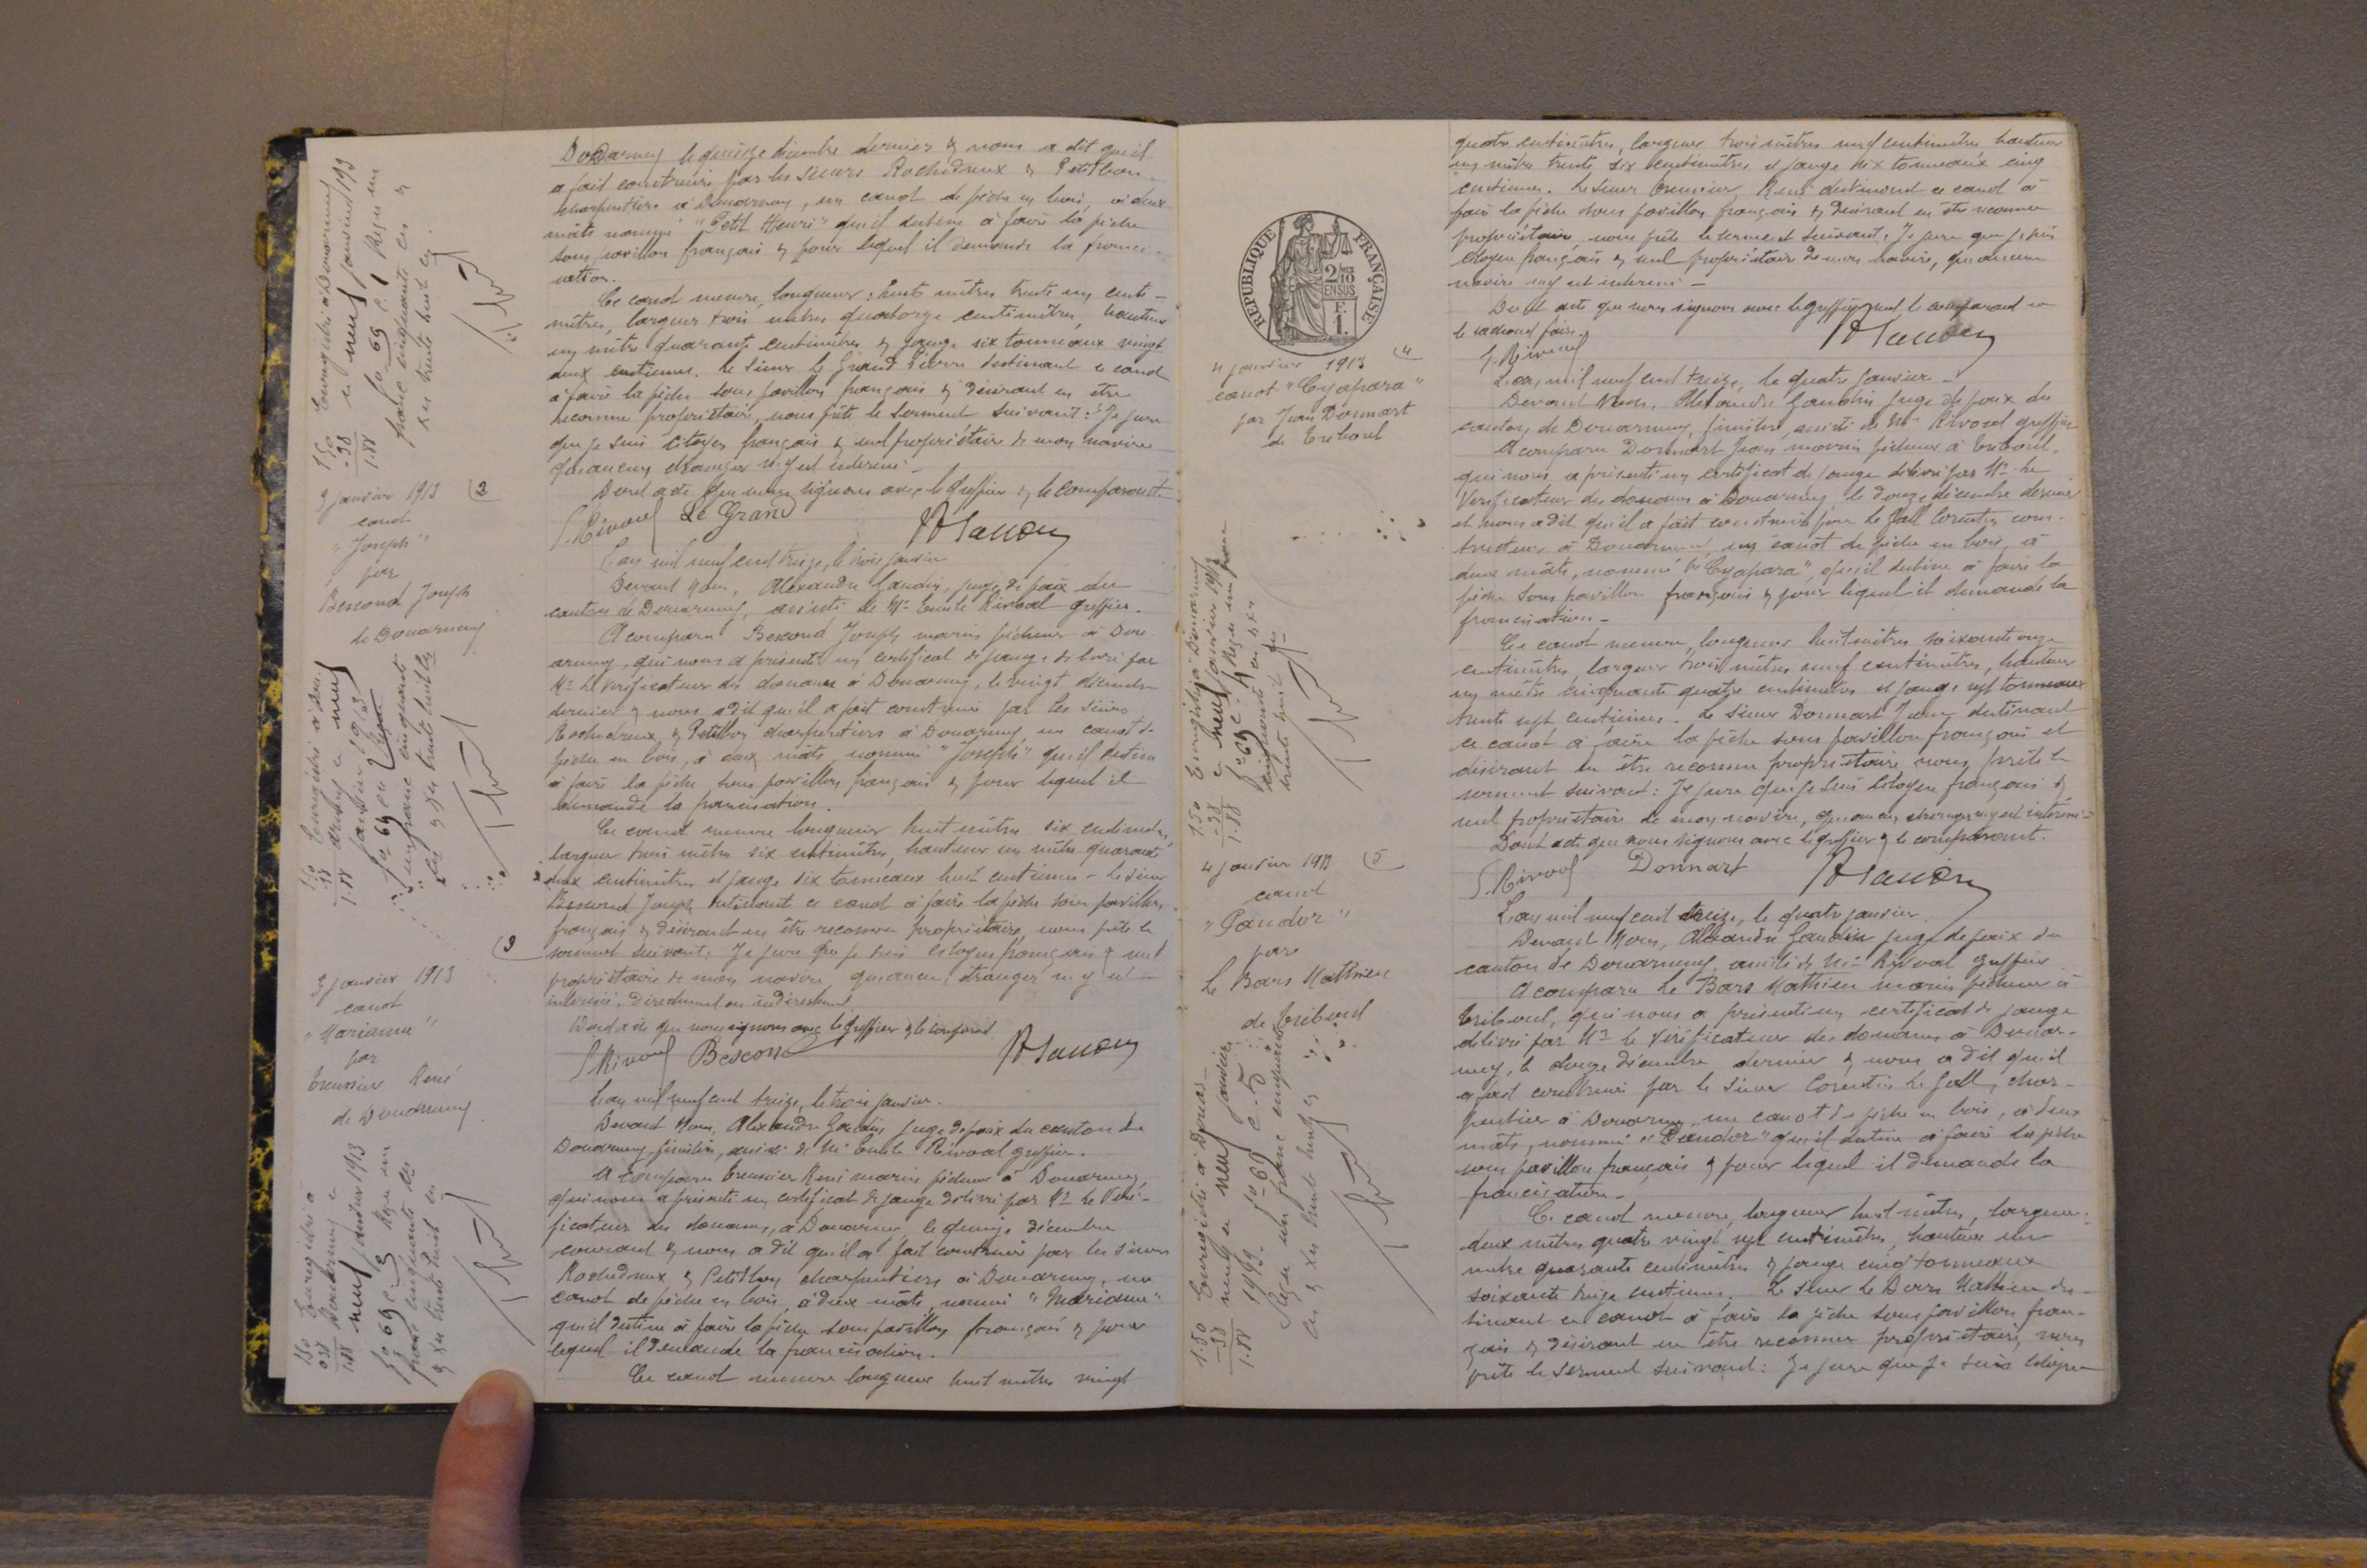 Douarnenez le quinze décembre dernier & nous a dit qu'il
a fait construire par les sieurs Rochedreux & Petitbon
charpentiers à Douarnenez, un canot de pêche en bois, à deux
mâts nommé "Petit Henri" qu'il destine à faire la pêche
sous pavillon français & pour lequel il demande la franci-
sation.
Ce canot mesure, longueur : huit mètres trente un centi-
mètres, largeur trois mètres quatorze centimètres, hauteur
un mètre quarante centimètres & jauge six tonneaux vingt
deux centièmes. Le sieur Le Grand Pierre destinant ce canot
à faire la pêche sous pavillon français & désirant en être
reconnu propriétaire, nous prête le serment suivant : "Je jure
que je suis citoyen français & seul propriétaire de mon navire
qu'aucun étranger n'y est intéressé -
Dont acte que nous signons avec le greffier & le comparant.
E. Rivoal Le Grand
L'an mil neuf cent treize, le trois janvier
Devant Nous, Alexandre Gaudin, juge de paix du
canton de Douarnenez, assisté de Me Emile Rivoal greffier.
A comparu Bescond Joseph marin pêcheur à Dou-
arnenez, qui nous a présenté un certificat de jauge délivré par
Mr Le Vérificateur des douanes à Douarnenez, le vingt décembre
dernier & nous a dit qu'il a fait construire par les sieurs
Rochedreux & Petitbon charpentiers à Douarnenez, un canot de
pêche en bois, à deux mâts, nommé "Joseph" qu'il destine
à faire la pêche sous pavillon français & pour lequel il
demande la francisation.
Ce canot mesure longueur huit mètres six centimètres,
largeur trois mètres six centimètres, hauteur un mètre quarante
deux centimètres et jauge six tonneaux huit centièmes - Le sieur
Bescond Joseph destinant ce canot à faire la pêche sous pavillon
français & désirant en être reconnu propriétaire, nous prête le
serment suivant : Je jure que je suis citoyen français & seul
propriétaire de mon navire qu'aucun étranger n'y est
intéressé, directement ou indirectement
Dont acte que nous signons avec le greffier & le comparant
E. Rivoal Bescond
L'an mil neuf cent treize, le trois janvier.
Devant Nous, Alexandre Gaudin juge de paix du canton de
Douarnenez, finistère, assisté de Me Emile Rivoal greffier.
A comparu Treussier René marin pêcheur à Douarnenez,
qui nous a présenté un certificat de jauge délivré par Mr Le Véri-
ficateur des douanes, à Douarnenez, le quinze décembre
courant & nous a dit qu'il a fait construire par les sieurs
Rochedreux & Petitbon charpentiers à Douarnenez, un
canot de pêche en bois, à deux mâts, nommé "Marianne"
qu'il destine à faire la pêche sous pavillon français & pour
lequel il demande la francisation.
Ce canot mesure longueur huit mètres vingt
1.50
-38
1.88
Enregistré à Douarnenez
le neuf janvier 1913
fo 69 c. 1 Reçu un
franc cinquante ces &
xes trente huit ces.
3 janvier 1913 (2
canot
"Joseph"
par
Bescond Joseph
de Douarnenez
1.50
-38
1.88
Enregistré à Dou-
arnenez le neuf
janvier 1913
fo 69 c. 2 Reçu
un franc cinquante
ces & xes trente huit ces
(3
3 janvier 1913
canot
"Marianne"
par
Treussier René
de Douarnenez
1.50
0.38
1.88
Enregistré à
Douarnenez le
neuf janvier 1913
fo 69 c. 3 Reçu un
franc cinquante ces
& xes trente huit ces
REPUBLIQUE FRANÇAISE
2/10
EN SUS
F.
1.
4 janvier 1913 (4
canot "Cyapara"
par Jean Donnart
de Tréboul
1.50
-38
1.88
Enregistré à Douarnenez
le neuf janvier 1913
fo 69 c. 4 Reçu un franc
cinquante ces & xes
trente huit ces
4 janvier 1913 (5
canot
"Pandor"
par
Le Bars Mathieu
de Tréboul
1.50
-38
1.88
Enregistré à Douar-
nenez le neuf janvier
1913. fo 69 c. 5
Reçu un franc cinquante
ces & xes trente huit ces
quatre centimètres, largeur trois mètres neuf centimètres hauteur
un mètre trente six centimètres et jauge six tonneaux cinq
centièmes. Le sieur Treussier René destinant ce canot à
faire la pêche sous pavillon français & désirant en être reconnu
propriétaire, nous prête le serment suivant : Je jure que je suis
citoyen français & seul propriétaire de mon navire, qu'aucun
navire n'y est intéressé -
De tt acte que nous signons avec le greffier seul le comparant ne
le sachant faire.
E. Rivoal
L'an mil neuf cent treize, le quatre janvier -
Devant Nous, Alexandre Gaudin juge de paix du
canton de Douarnenez, finistère, assisté de Me Rivoal greffier
A comparu Donnart Jean marin pêcheur à Tréboul,
qui nous a présenté un certificat de jauge délivré par Mr Le
Vérificateur des douanes à Douarnenez le douze décembre dernier
et nous a dit qu'il a fait construire par Le Gall Corentin cons-
tructeur à Douarnenez, un canot de pêche en bois, à
deux mâts, nommé "Cyapara", qu'il destine à faire la
pêche sous pavillon français & pour lequel il demande la
francisation -
Ce canot mesure, longueur huit mètres soixante onze
centimètres, largeur trois mètres neuf centimètres, hauteur
un mètre cinquante quatre centimètres et jauge sept tonneaux
trente sept centièmes. Le sieur Donnart Jean destinant
ce canot à faire la pêche sous pavillon français et
désirant en être reconnu propriétaire nous prête le
serment suivant : Je jure que je suis citoyen français &
seul propriétaire de mon navire, qu'aucun étranger n'y est intéressé -
Dont acte que nous signons avec le greffier & le comparant.
E. Rivoal Donnart
L'an mil neuf cent treize, le quatre janvier.
Devant Nous, Alexandre Gaudin juge de paix du
canton de Douarnenez, assisté de Me Rivoal greffier
A comparu Le Bars Mathieu marin pêcheur à
Tréboul, qui nous a présenté un certificat de jauge
délivré par Mr le Vérificateur des douanes à Douar-
nenez, le douze décembre dernier & nous a dit qu'il
a fait construire par le sieur Corentin Le Gall, char-
pentier à Douarnenez, un canot de pêche en bois, à deux
mâts, nommé "Pandor" qu'il destine à faire la pêche
sous pavillon français & pour lequel il demande la
francisation -
Ce canot mesure, longueur huit mètres, largeur
deux mètres quatre vingt sept centimètres, hauteur un
mètre quarante centimètres & jauge cinq tonneaux
soixante treize centièmes. Le sieur Le Bars Mathieu des-
tinant ce canot à faire la pêche sous pavillon fran-
çais & désirant en être reconnu propriétaire, nous
prête le serment suivant : Je jure que je suis citoyen